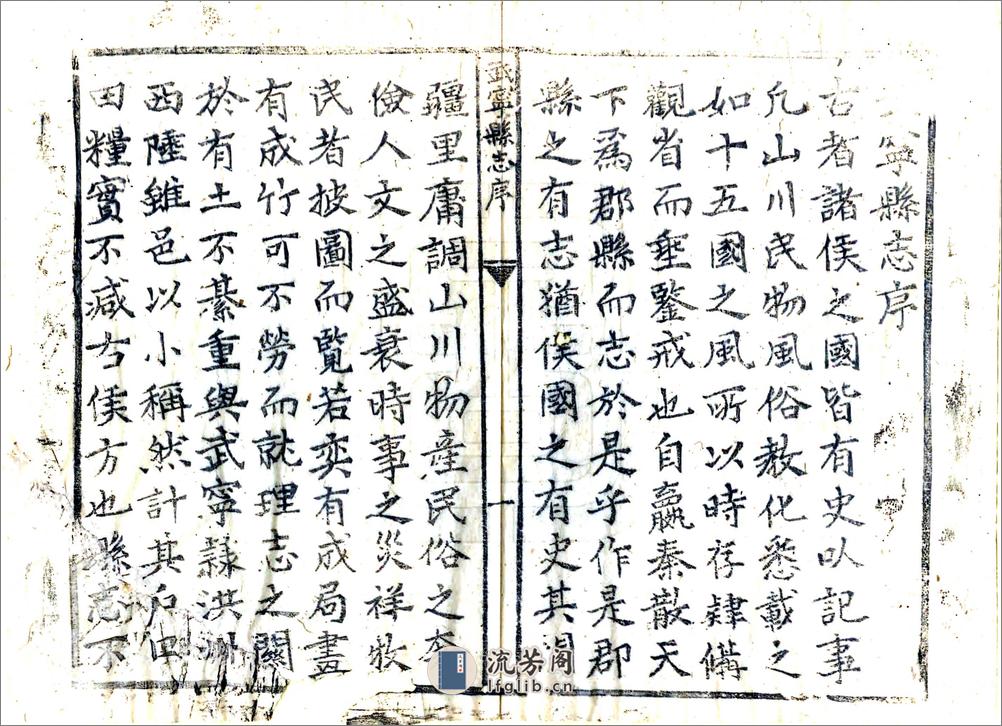 寧縣志序
古者諸侯之國皆有史以記事
凡山川民物風俗教化悉載之
如十五國之風所以時存肄備
觀省而垂鑒戒也自嬴秦散天
下為郡縣而志於是乎作是郡
縣之有志猶侯國之有史其
武寧縣志序
一
疆里庸調山川物產民俗之奢
儉人文之盛衰時事之災祥牧
民者披圖而覽若奕有成局畫
有成竹可不勞而就理志之關
於有土不綦重與武寧隸洪州
西陲雖邑以小稱然計其戶
田糧實不減古侯方也縣志不
流芳閣
lfglib.cn